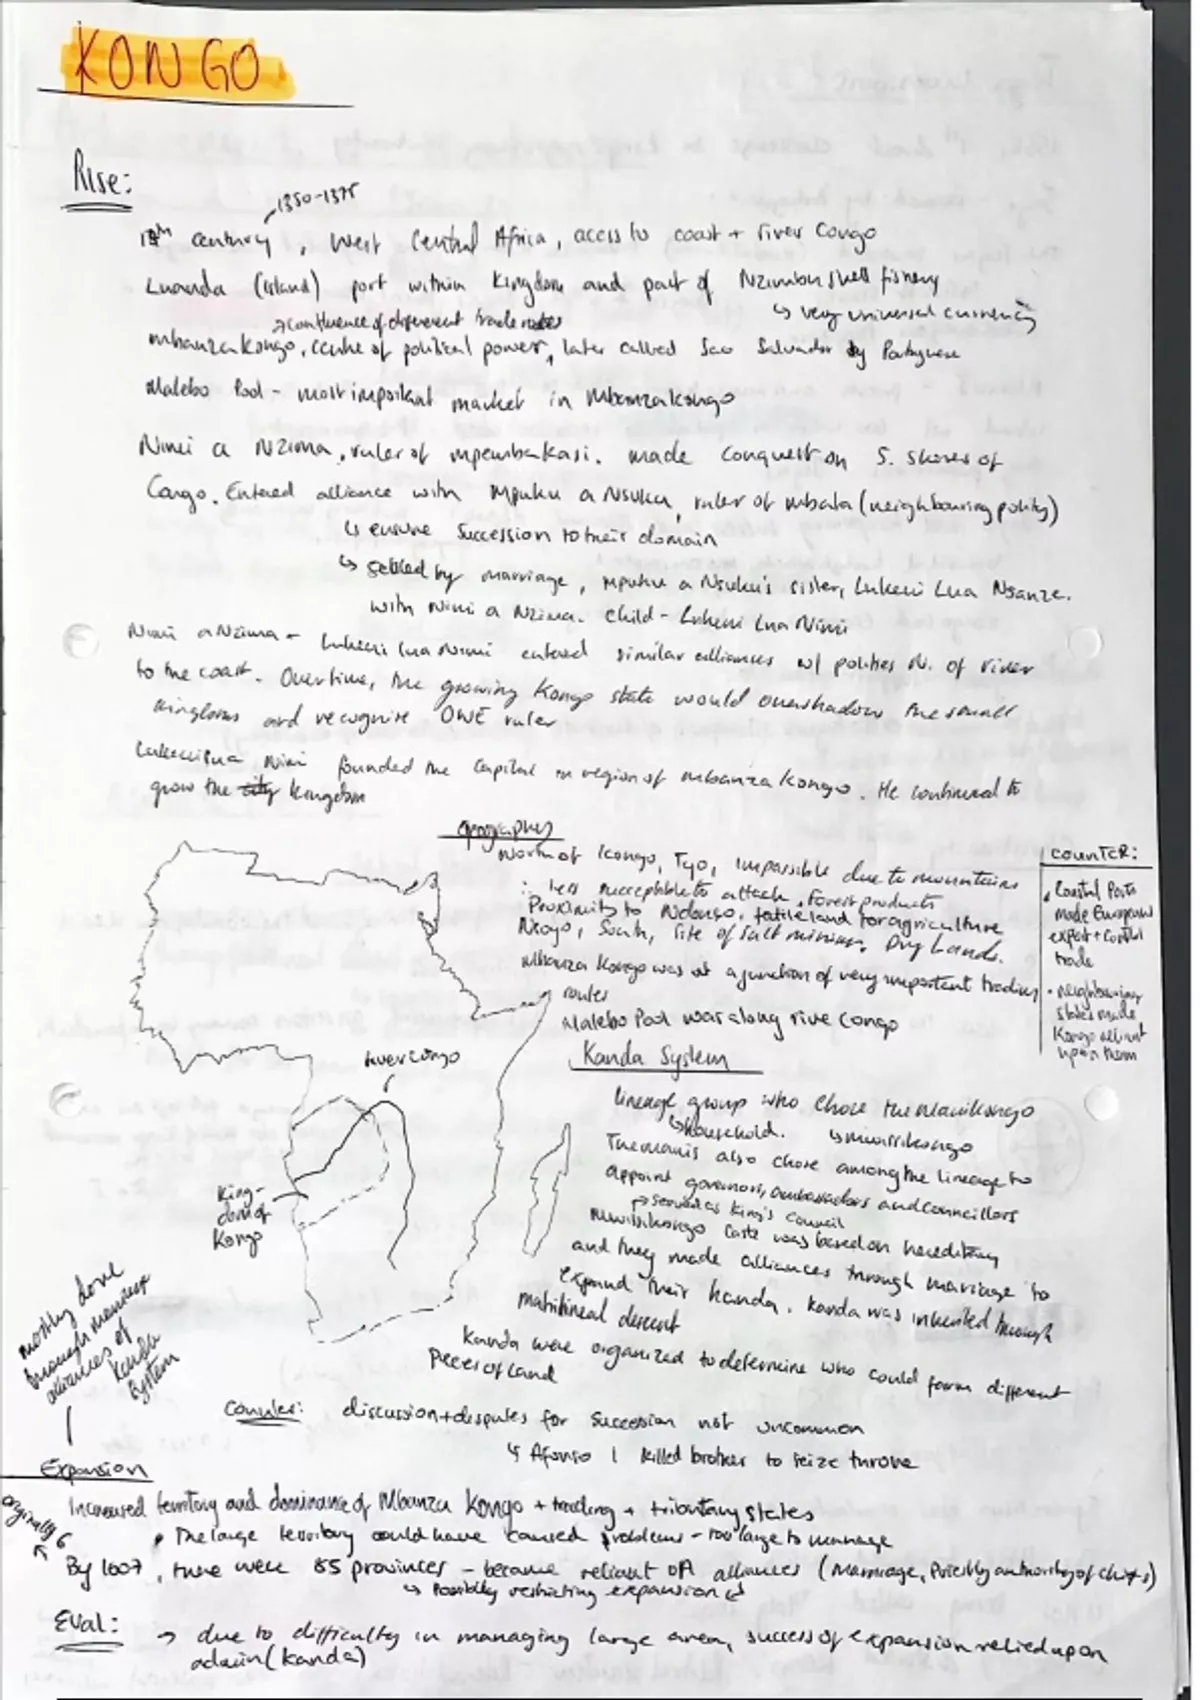 KONGO
Rise:
1350-1375
14th century, West Central Africa, access to coast + river Congo
Luanda (island) port within Kingdom and part of Nzimbu shell fishery
↳ very universal currency
→ confluence of different trade routes
mbanza kongo, centre of political power, later called Sao Salvador by Portuguese
Malebo Pool - most important market in Mbanza kongo
Nimi a Nzima, ruler of mpemba kasi. made conquest on S. shores of
Congo. Entered alliance with Mpuku a Nsuku, ruler of mbata (neighbouring polity)
↳ ensure succession to their domain
↳ settled by marriage, mpuku a Nsuku's sister, Lukeni Lua Nsanze.
with Nimi a Nzima. child - Lukeni Lua Nimi
Nimi a Nzima + Lukeni lua Nimi entered similar alliances w/ polities N. of river
to the coast. Overtime, the growing Kongo state would overshadow the small
kingdoms and recognise ONE ruler
Lukeni lua Nimi founded the capital in region of mbanza kongo. He continued to
grow the city kingdom
geography
North of Kongo, Tyo, impossible due to mountains
∴ less susceptible to attack, Forest products
Proximity to Ndongo, fertile land for agriculture
Nsoyo, South, site of salt mining, Dry Lands.
Mbanza Kongo was at a junction of very important trading
routes
Malebo Pool was along rive Congo
COUNTER:
• Coastal Ports
made European
export + control
trade
• neighbouring
states made
Kongo reliant
upon them
river congo
King-
dom of
Kongo
Kanda System
lineage group who chose the Manikongo
↳ household. ↳ mwissikongo
The manis also chose among the lineage to
appoint governors, ambassadors and councillors
→ served as king's council
Mwisikongo caste was based on hereditary
and they made alliances through marriage to
expand their kanda. kanda was inherited through
matrilineal descent
Kanda were organized to determine who could farm different
pieces of land
Counter: discussion + disputes for succession not uncommon
↳ Afonso I killed brother to seize throne
mostly done
through marriage
alliances of
kanda
system
Expansion
Increased territory and dominance of Mbanza Kongo + trading + tributary states
• The large territory could have caused problems - too large to manage
originally 6
By 1607, there were 85 provinces - became reliant on alliances (marriage, Priestly authority of chiefs)
↳ Possibly restricting expansion
Eval: → due to difficulty in managing large area, success of expansion relied upon
admin (kanda)